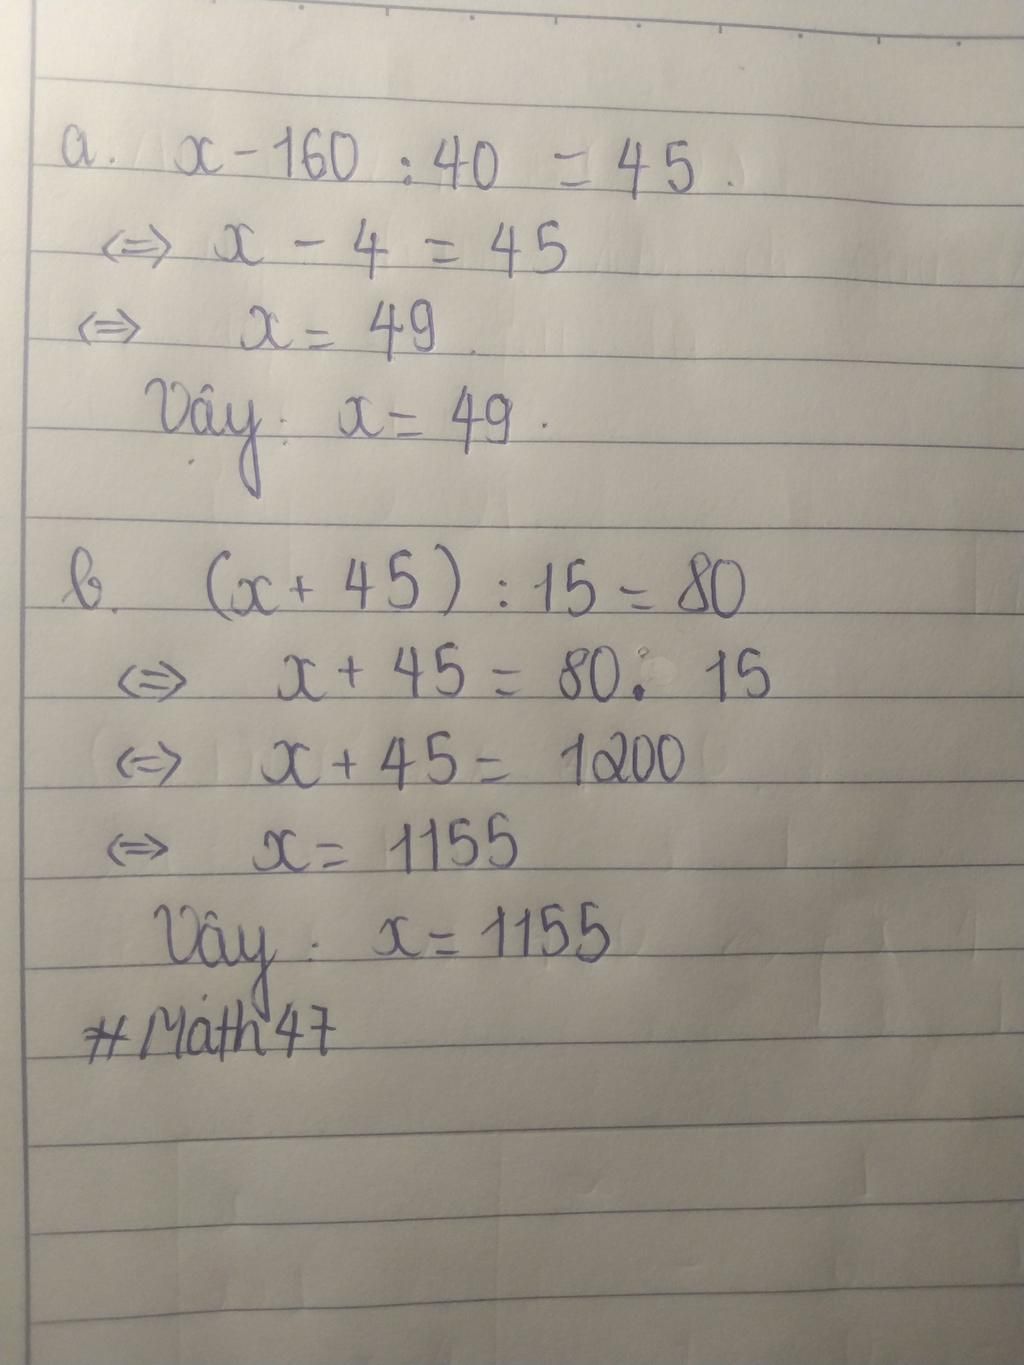 a. x - 160 : 40 = 45.
<=> x - 4 = 45
<=> x = 49.
Vây: x = 49.
b. (x + 45) : 15 = 80
<=> x + 45 = 80. 15
<=> x + 45 = 1200
<=> x = 1155
Vây: x = 1155
#Math47